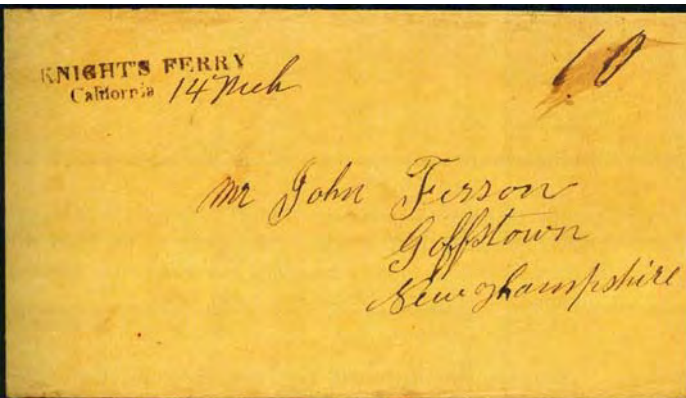 KNIGHT'S FERRY
California 14 Mch
10
Mr John Ferson
Goffstown
New Hampshire